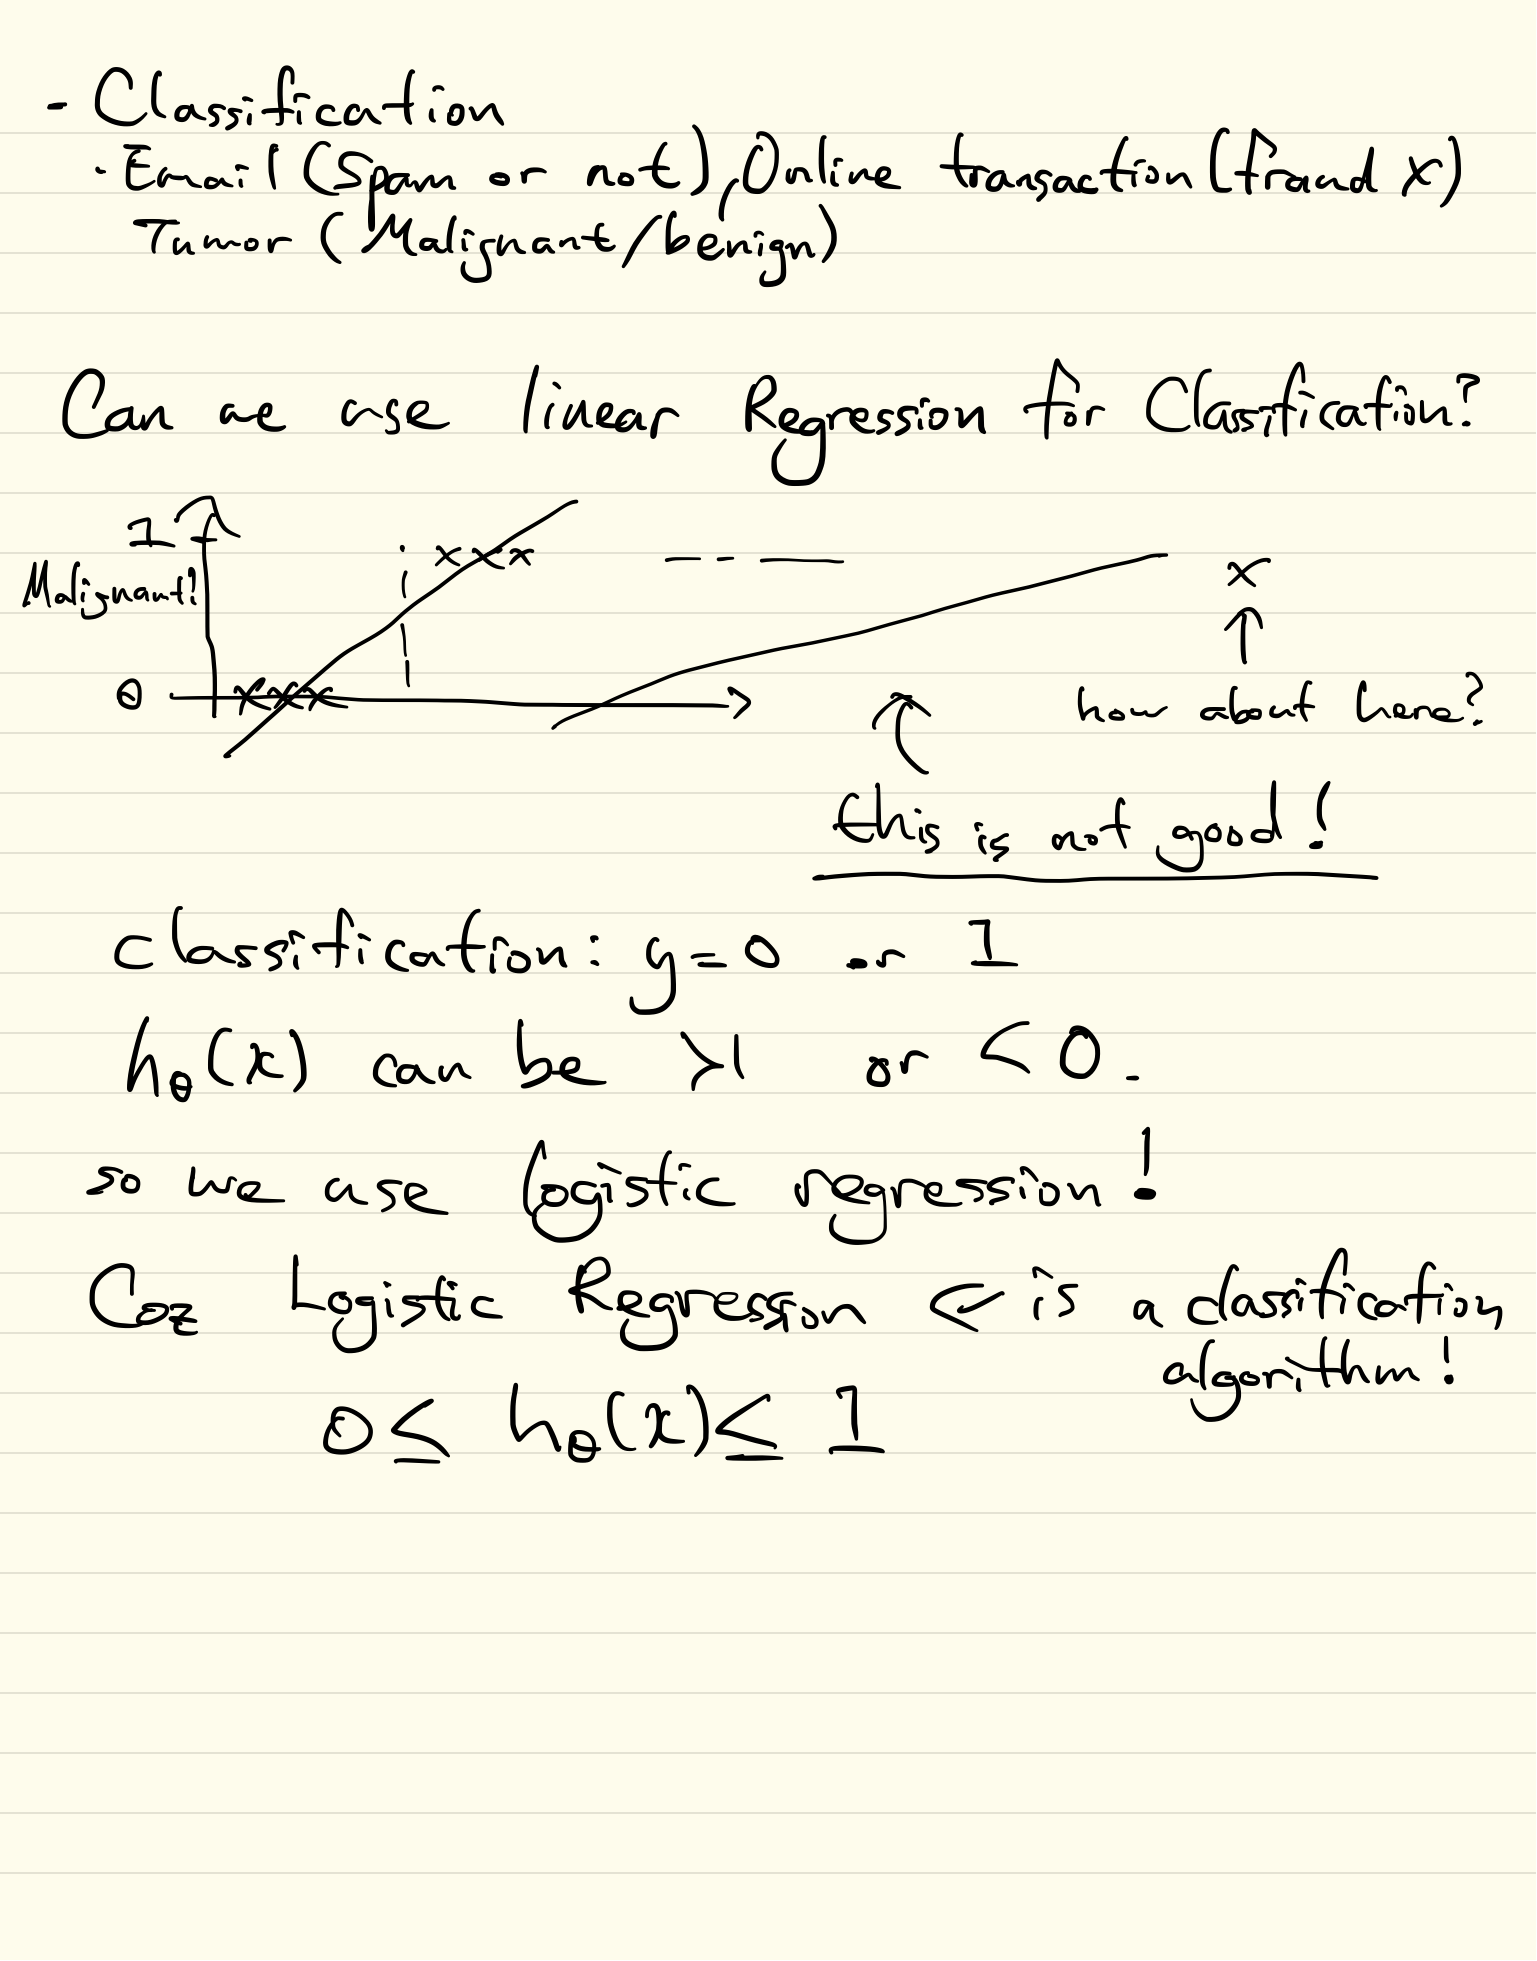 - Classification
· Email (Spam or not), Online transaction (fraud x)
Tumor (Malignant/benign)
Can we use linear Regression for Classification?
1
x x x
Malignant?
x
0
x x x
how about here?
this is not good!
classification: y=0 or 1
hθ(x) can be >1 or <0.
so we use logistic regression!
Coz Logistic Regression ← is a classification
algorithm!
0≤ hθ(x)≤ 1